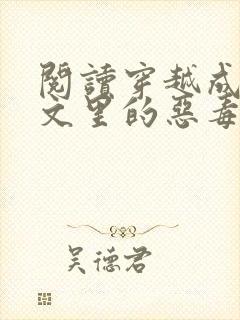 閱讀穿越成
文里的惡毒
吳德君